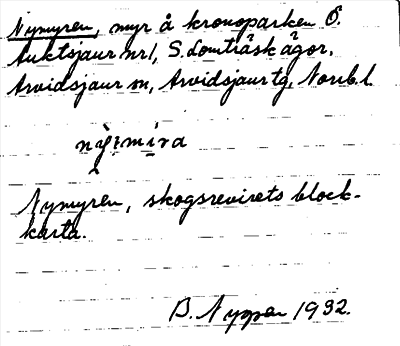 Nymyren, myr å kronoparken Ö.
Auktsjaur nr 1, S. Lomträsk ägor,
Arvidsjaur sn, Arvidsjaur tg, Norrb. l.
Nymyren, skogsrevirets block-
karta.
B. Nyppen 1932.